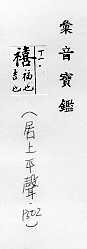 彙音寶鑑
禧
福也
吉也
(居上平聲·1802)